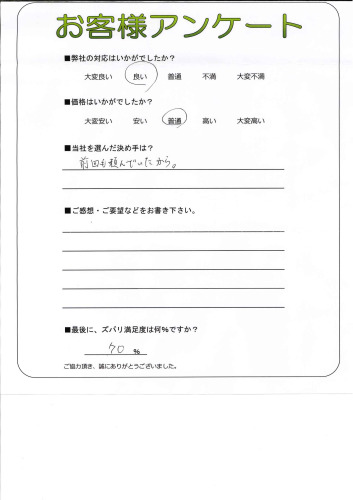 お客様アンケート
■弊社の対応はいかがでしたか?
大変良い 良い 普通 不満 大変不満
■価格はいかがでしたか?
大変安い 安い 普通 高い 大変高い
■当社を選んだ決め手は?
前回も頼んでいたから。
■ご感想・ご要望などをお書き下さい。
■最後に、ズバリ満足度は何%ですか?
70 %
ご協力頂き、誠にありがとうございました。